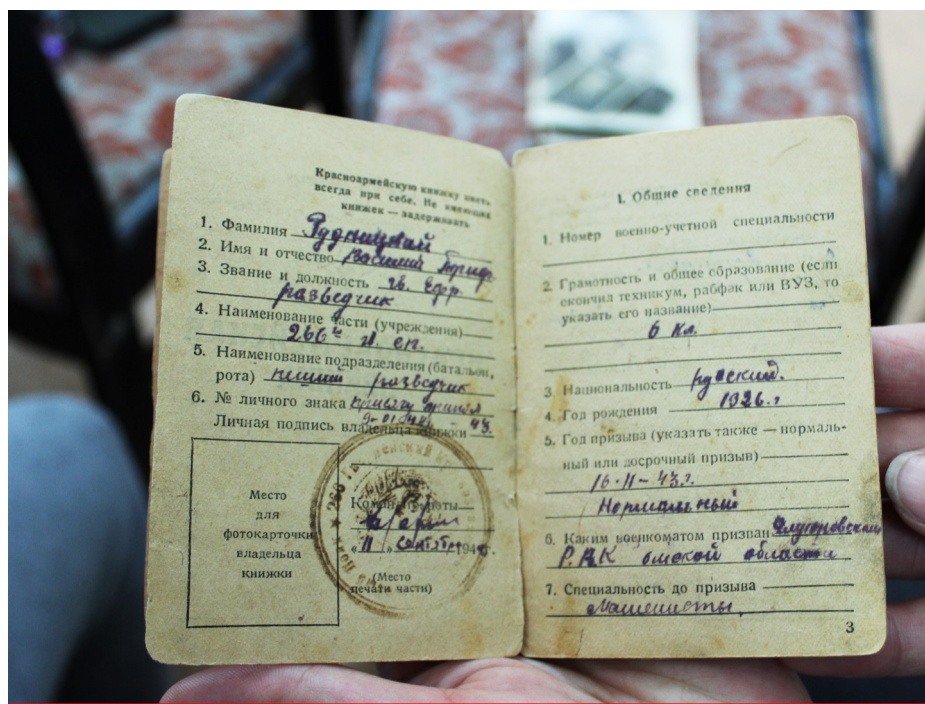 Красноармейскую книжку иметь
всегда при себе. Не имеющих
книжек — задерживать
1. Фамилия
2. Имя и отчество Василий
3. Звание и должность гв. Ефр.
разведчик
4. Наименование части (учреждения)
266й гв. сп.
5. Наименование подразделения (батальон,
рота) пеший разведчик
6. № личного знака
Личная подпись владельца книжки
Место
для
фотокарточки
владельца
книжки
Командир роты
"11" сентября 194
(Место
печати части)
1. Общие сведения
1. Номер военно-учетной специальности
2. Грамотность и общее образование (если
окончил техникум, рабфак или ВУЗ, то
указать его название)
6 кл.
3 Национальность руский.
4. Год рождения 1926.г
5. Год призыва (указать также — нормаль-
ный или досрочный призыв)
16-11-43.г.
Нормальный
6. Каким военкоматом призван Ялуторовским
Р.В.К омской области
7. Специальность до призыва
3